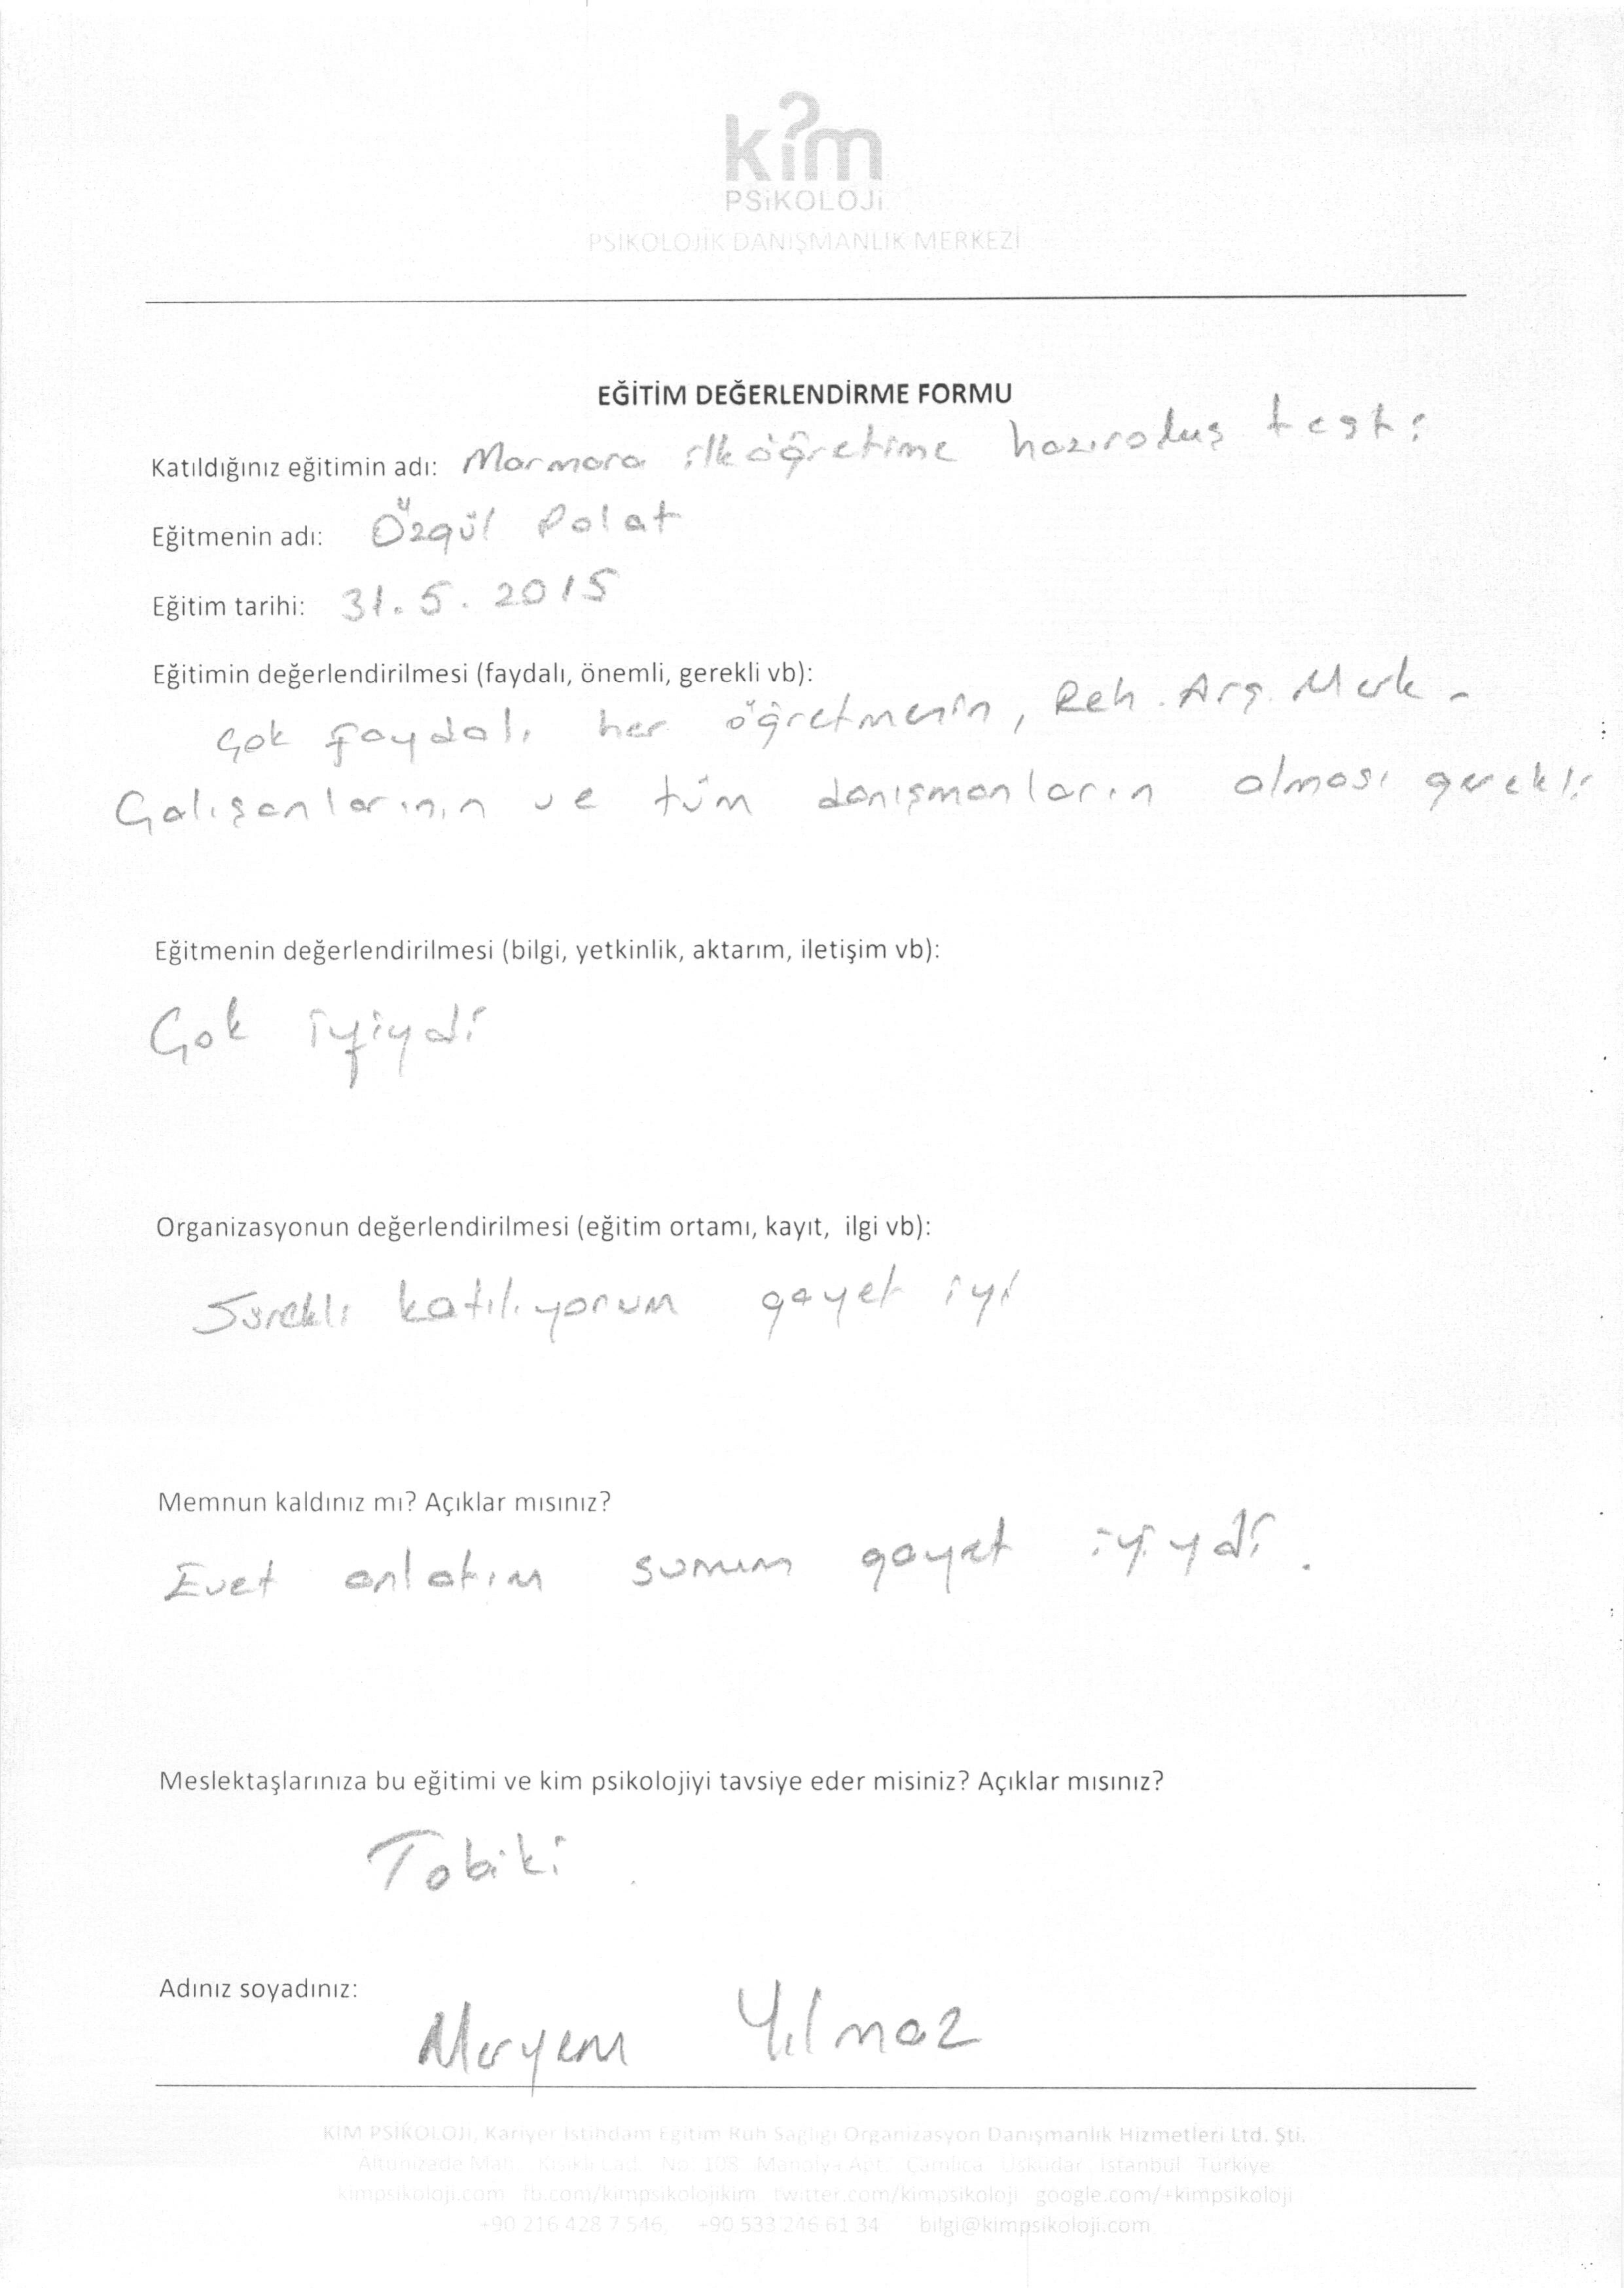 kim
PSiKOLOJi
PSİKOLOJİK DANIŞMANLIK MERKEZİ
EĞİTİM DEĞERLENDİRME FORMU
Katıldığınız eğitimin adı: Marmara ilköğretime hazıroluş testi
Eğitmenin adı: Özgül Polat
Eğitim tarihi: 31.5.2015
Eğitimin değerlendirilmesi (faydalı, önemli, gerekli vb):
Çok faydalı her öğretmenin, Reh. Arş. Merk-
Çalışanlarının ve tüm danışmanların alması gerekli
Eğitmenin değerlendirilmesi (bilgi, yetkinlik, aktarım, iletişim vb):
Çok iyiydi
Organizasyonun değerlendirilmesi (eğitim ortamı, kayıt, ilgi vb):
Sürekli katılıyorum gayet iyi
Memnun kaldınız mı? Açıklar mısınız?
Evet anlatım sunum gayet iyiydi.
Meslektaşlarınıza bu eğitimi ve kim psikolojiyi tavsiye eder misiniz? Açıklar mısınız?
Tabiki.
Adınız soyadınız:
Meryem Yılmaz
KİM PSİKOLOJİ, Kariyer İstihdam Eğitim Ruh Sağlığı Organizasyon Danışmanlık Hizmetleri Ltd. Şti.
Altunizade Mah. Kısıklı Cad. No: 108 Manolya Apt. Çamlıca Üsküdar İstanbul Türkiye
kimpsikoloji.com fb.com/kimpsikolojikim twitter.com/kimpsikoloji google.com/+kimpsikoloji
+90 216 428 7 546, +90 533 246 61 34 bilgi@kimpsikoloji.com